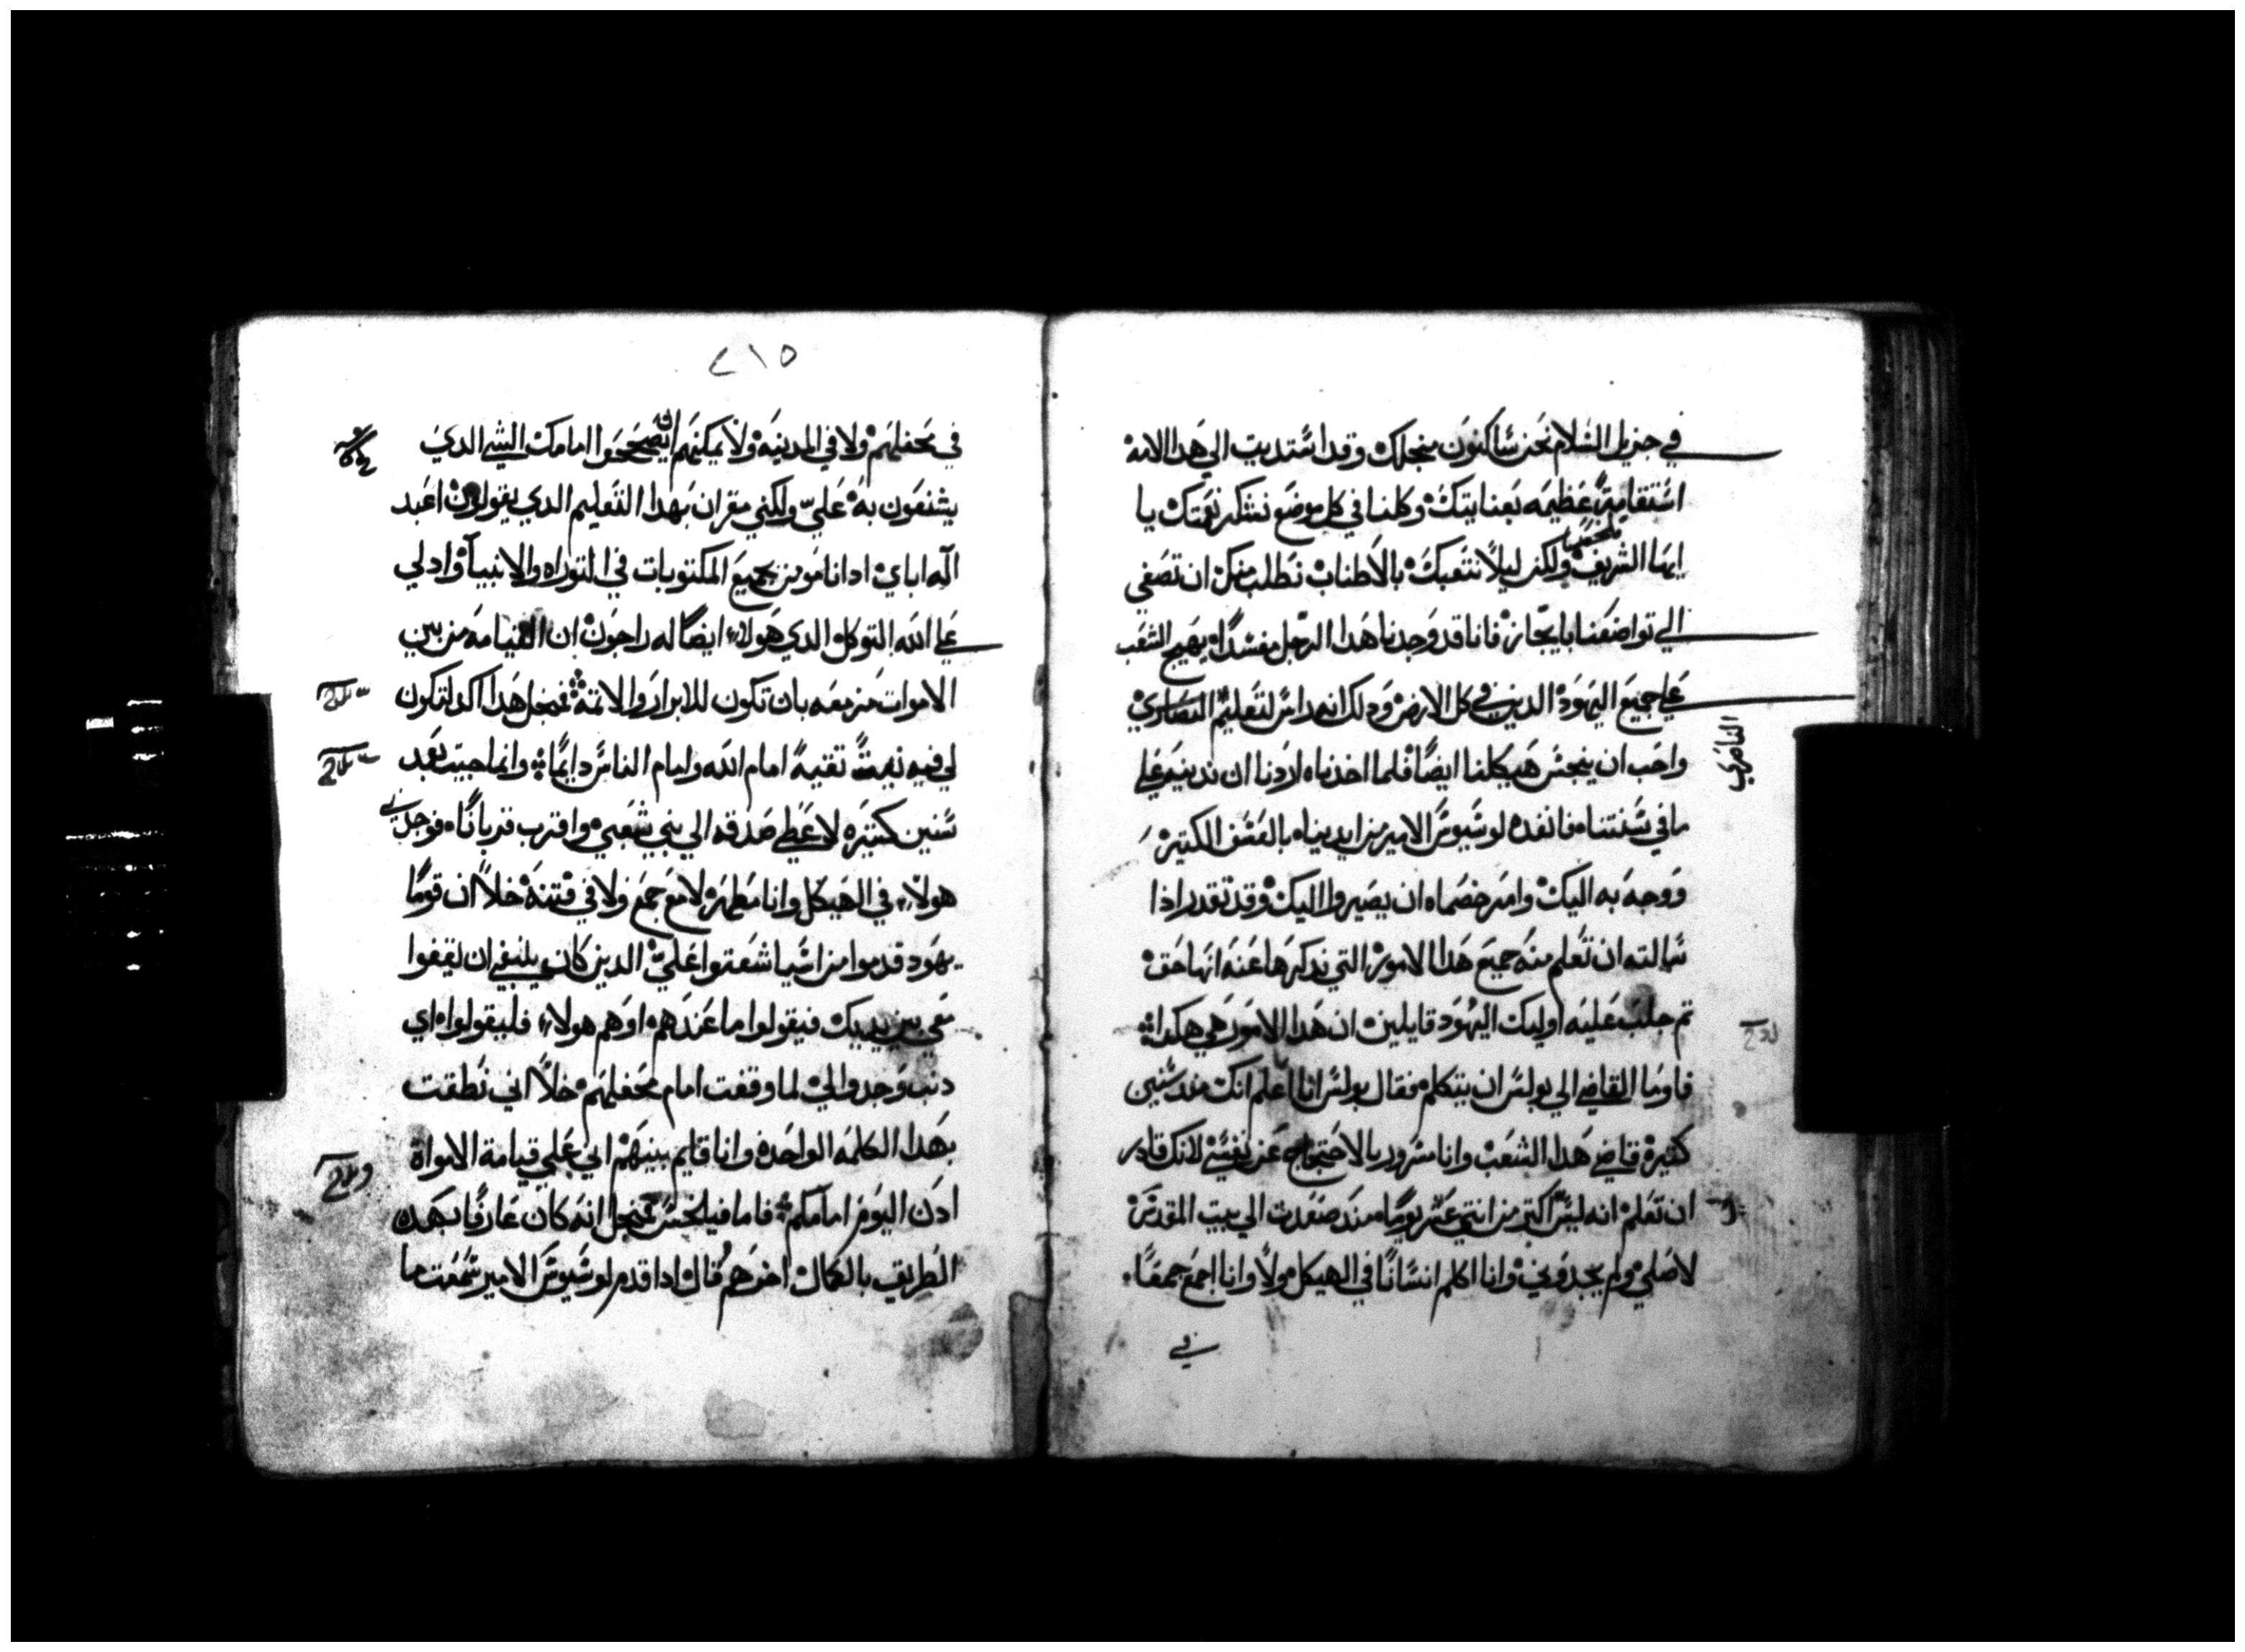 في جزيل السلام نحن ساكنون منجلك وقد استديت الي هدا الامه
استقامة عظيمه بعنايتك وكلنا في كل موضع نتشكر نعمتك يا
ايها الشريف ولكن ليلا نتعبك بالاطناب نطلب منك ان تصغي
الي تواضعنا بايجاز فانا قد وجدنا هدا الرجل مفسدا يهيج الشغب
علي جميع اليهود الدين في كل الارض ودلك انه راس لتعليم النصاري
الناصري
واحب ان ينجس هيكلنا ايضا فلما اخدناه اردنا ان ندينه علي
ما في سنتنا فانفده لوسيوس الامير من ايدينا بالعسف الكتير
ووجه به اليك وامر خصماه ان يصيروا اليك وقد تقدر ادا
سالته ان تعلم منه جميع هدا الامور التي ندكرها عنه انها حق
تم جلب عليه اوليك اليهود قايلين ان هدا الامور هي هكدا
فاوما القاضي الي بولس ان يتكلم فقال بولس انا اعلم انك مند سنين
كتيرة قاضي هدا الشعب وانا مسرور بالاحتجاج عن نفسي لانك قادر
ان تعلم انه ليس اكتر من اتني عشر يوما مند صعدت الي بيت المقدس
لاصلي ولم يجدوني وانا اكلم انسانا في الهيكل ولا وانا اجمع جمعا
في
٢١٥
في محفلهم ولا في المدينه ولا يمكنهم ان يصححوا امامك الشي الدي
يشنعون به علي ولكني مقر ان بهدا التعليم الدي يقولون اعبد
اله اباي اد انا مومن بجميع المكتوبات في التوراه والانبيا واد لي
علي الله التوكل الدي هولاء ايضا له راجون ان القيامه من بين
الاموات مزمعه بان تكون للابرار والاتمة فمنجل هدا اكد لتكون
لي فيه نقية امام الله وامام الناس دايما وانما جيت بعد
سنين كتيره لاعطي صدقه الي بني شعبي واقرب قربانا فوجدني
هولاء في الهيكل وانا مطهر لا مع جمع ولا في فتنة خلا ان قوما
يهود قدموا من اسيا شغتوا علي الدين كان ينبغي ان يقفوا
معي بين يديك فيقولوا ما عندهم او هم هولاء فليقولوا اي
دنب وجدوا لي لما وقفت امام محفلهم خلا اني نطقت
بهدا الكلمه الواحده وانا قايم بينهم اني علي قيامة الاموات
ادن اليوم امامكم فاما فيلخس فمنجل انه كان عارفا بهده
الطريق بالكمال اخرهم قال ادا قدم لوسيوس الامير سمعت ما